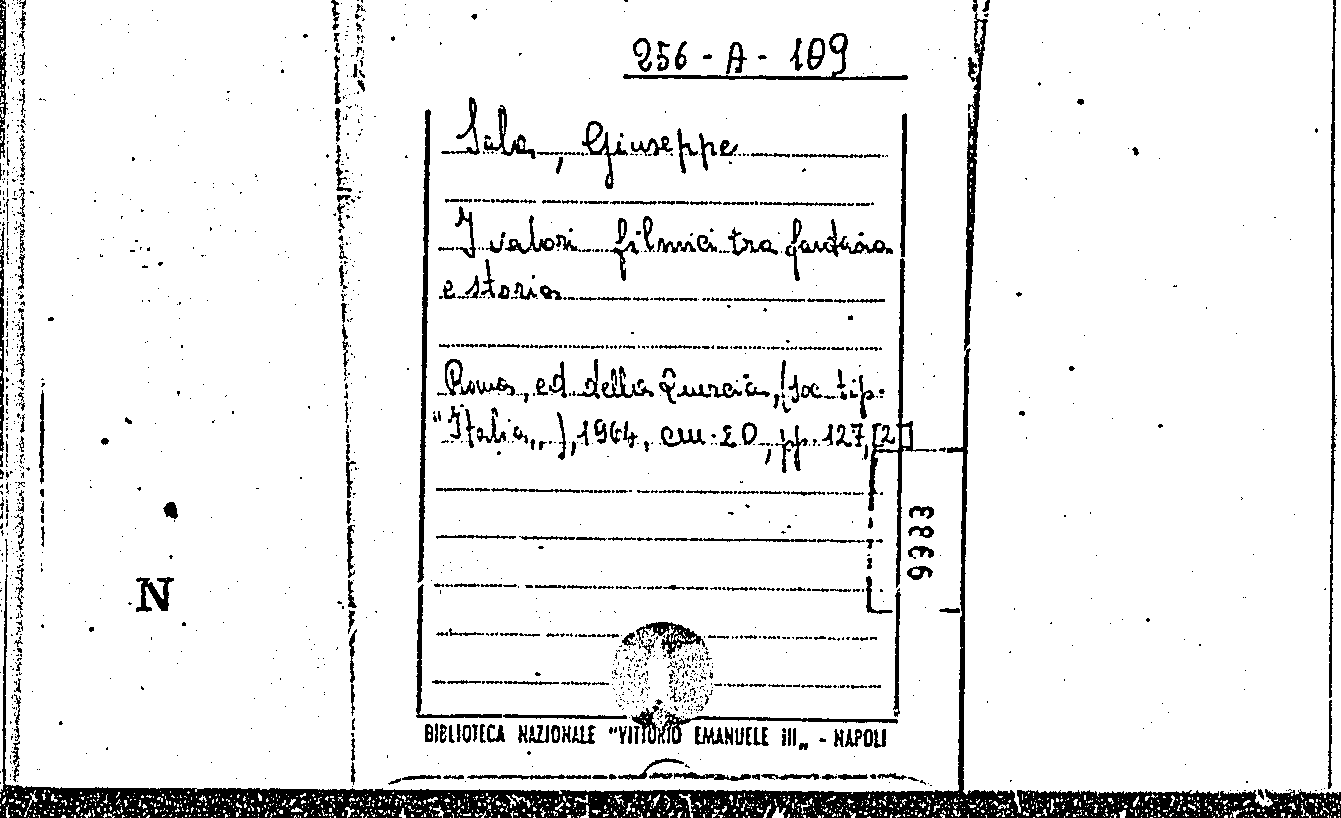 256 - A - 109
Sala, Giuseppe
I valori filmici tra fantasia
e storia
Roma, ed. della Quercia, (soc. tip.
"Italia„), 1964, cm. 20, pp. 127, [2]
9983
N
BIBLIOTECA NAZIONALE "VITTORIO EMANUELE III„ - NAPOLI